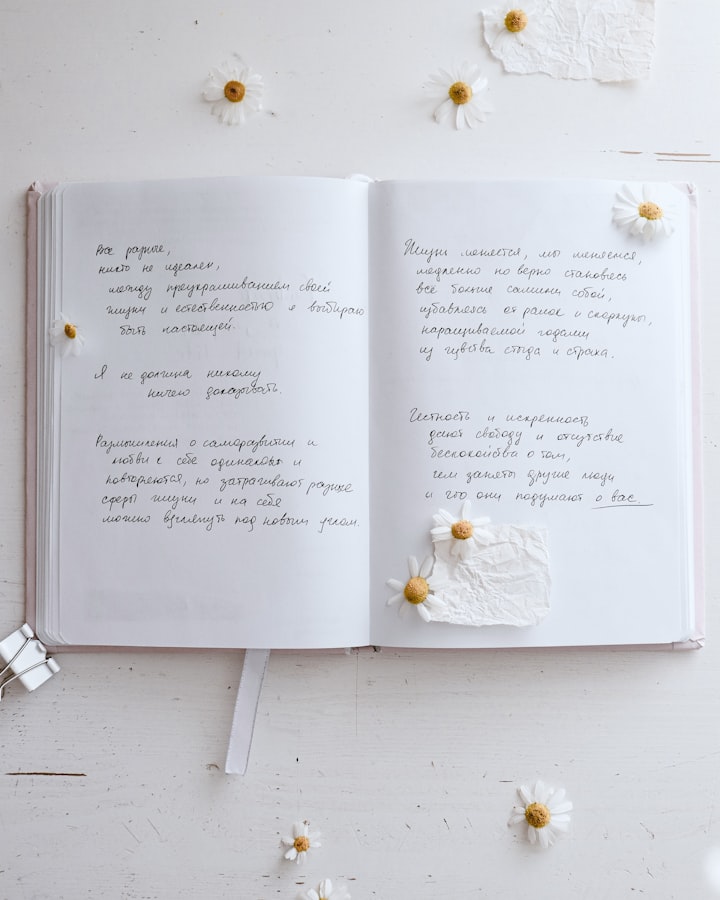 Все разные,
никто не идеален,
между приукрашиванием своей
жизни и естественностью я выбираю
быть настоящей.
Я не должна никому
ничего доказывать.
Размышления о саморазвитии и
любви к себе одинаковы и
повторяются, но затрагивают разные
сферы жизни и на себя
можно взглянуть под новым углом.
Жизнь меняется, мы меняемся,
медленно но верно становясь
всё больше самими собой,
избавляясь от рамок и скорлупы,
наращиваемой годами
из чувства стыда и страха.
Честность и искренность
дают свободу и отсутствие
беспокойства о том,
чем заняты другие люди
и что они подумают о вас.